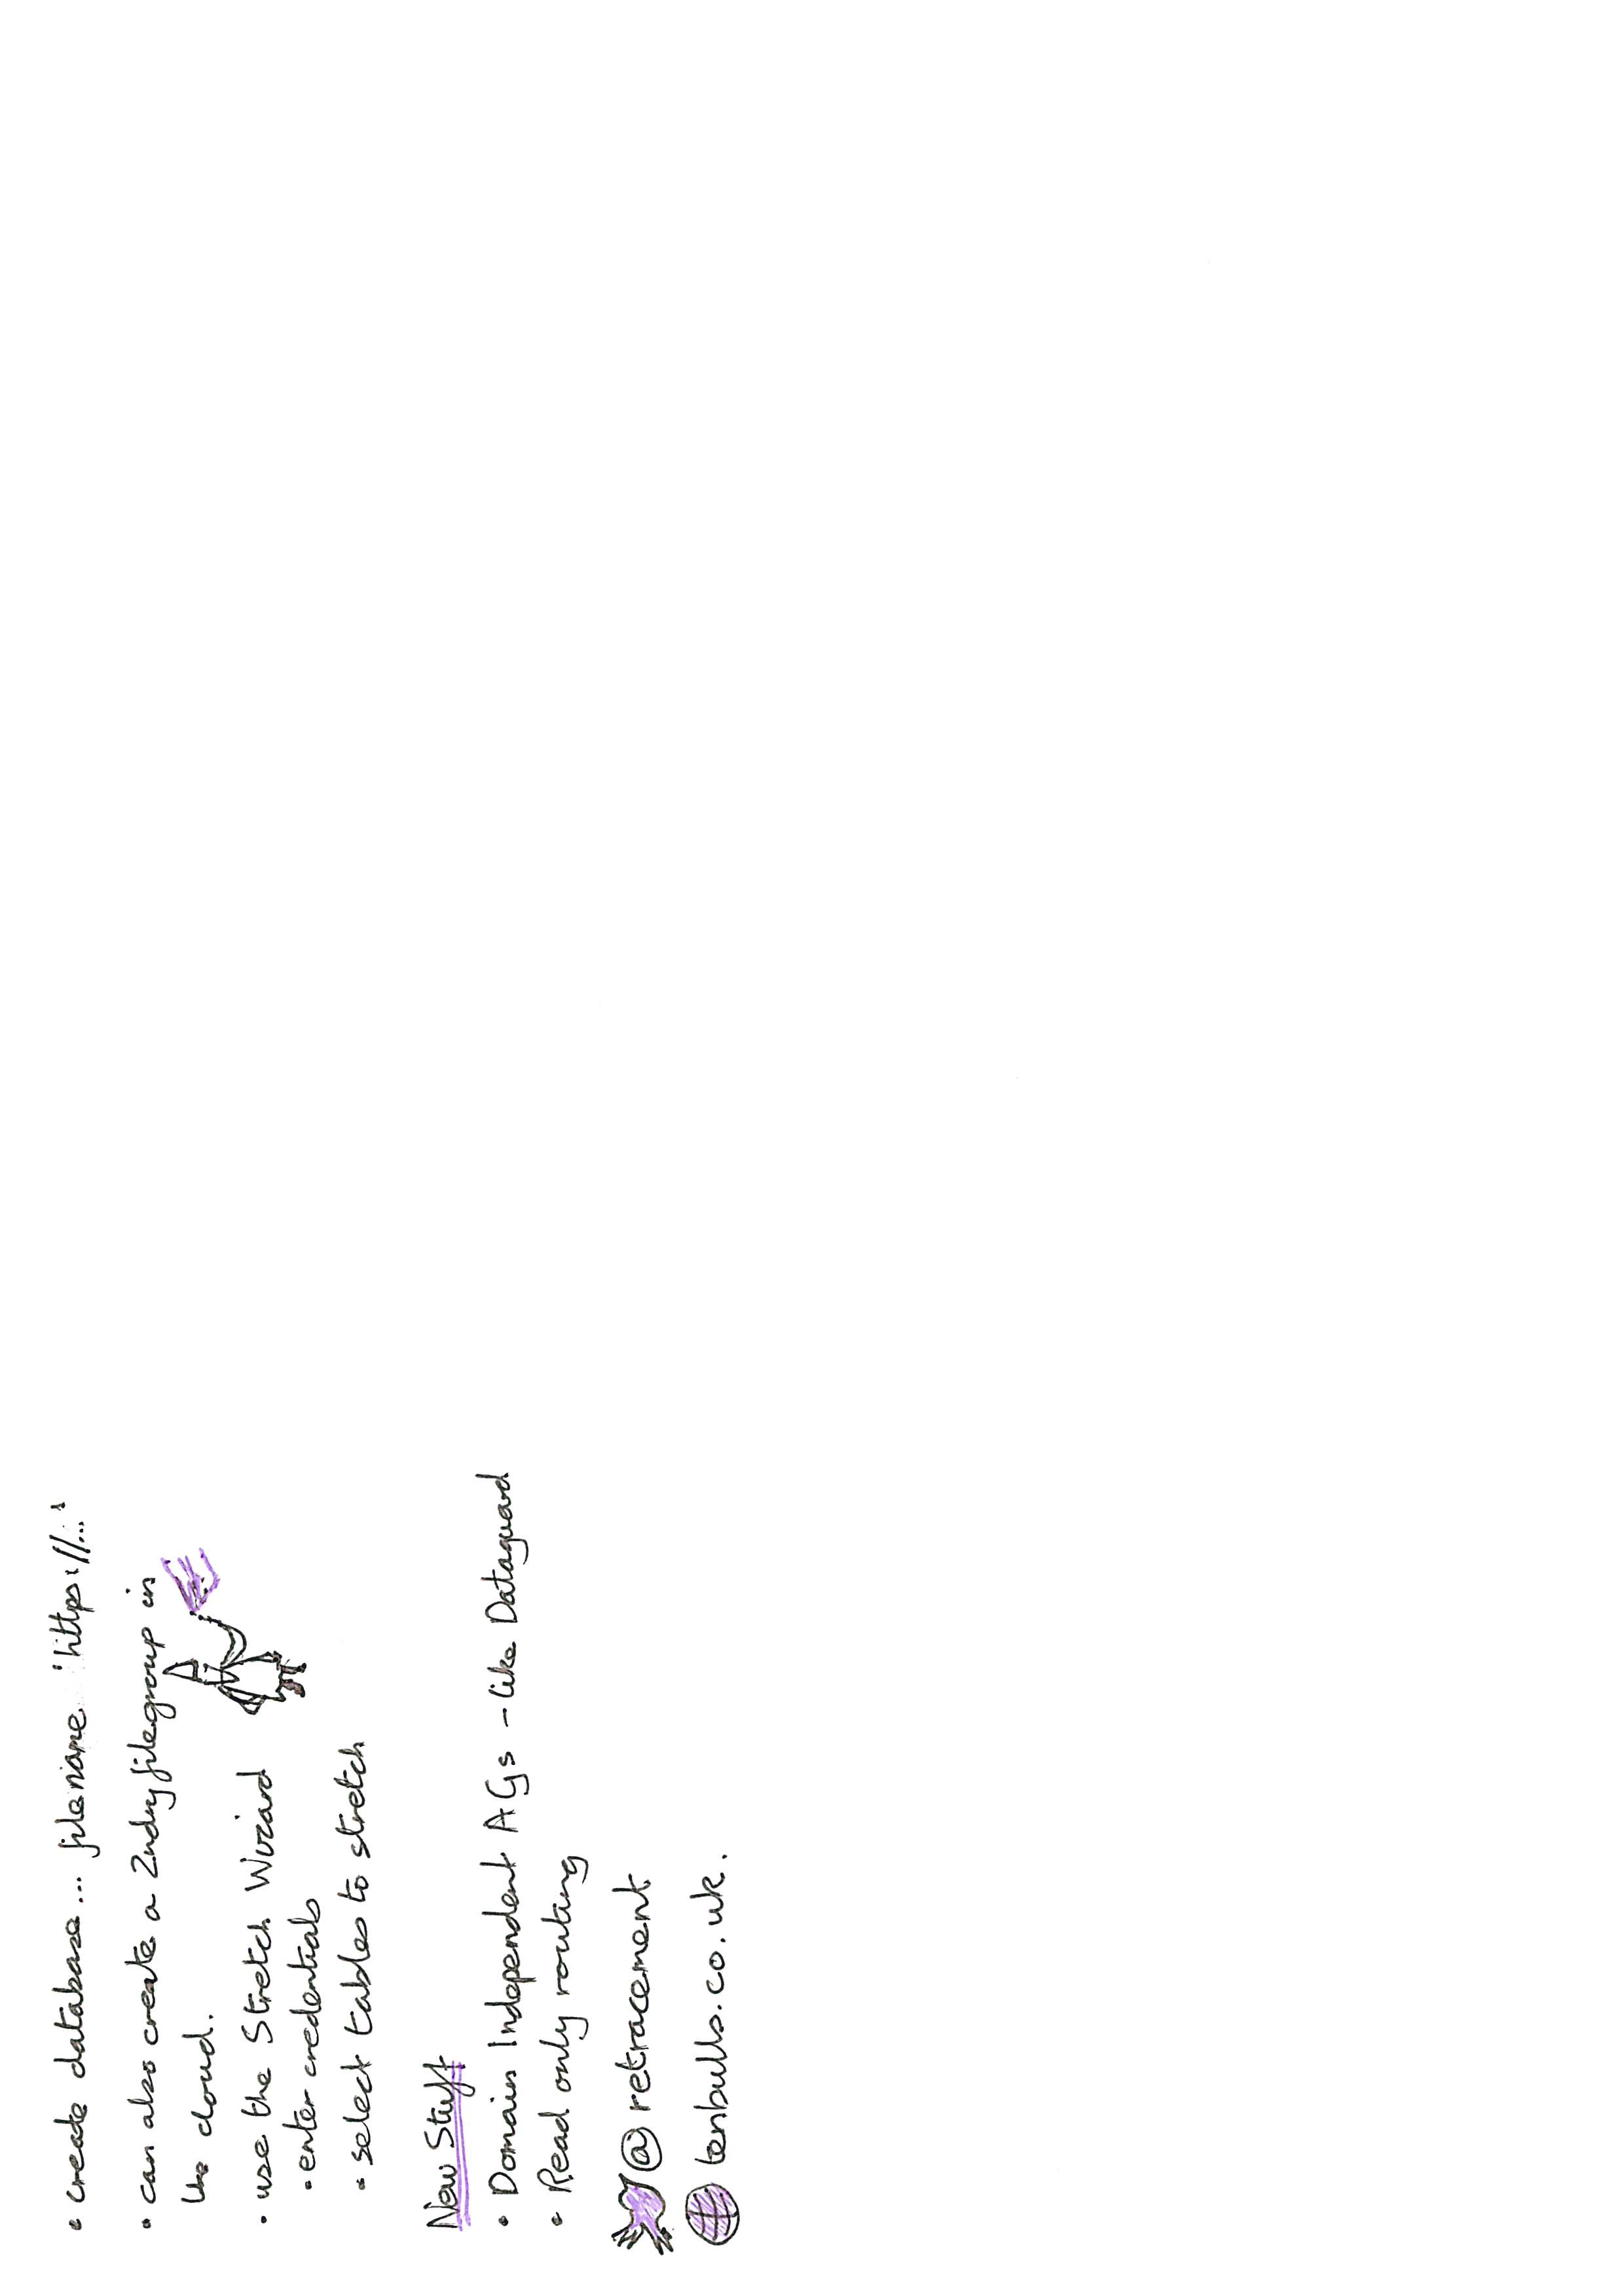 • create database... filename 'https://...'
• can also create a 2ndry filegroup in
the cloud.
• use the Stretch Wizard
• enter credentials
• select tables to stretch
New Stuff
• Domain Independent AGs - like Dataguard
• Read only routing
@retracement
tenbulls.co.uk.